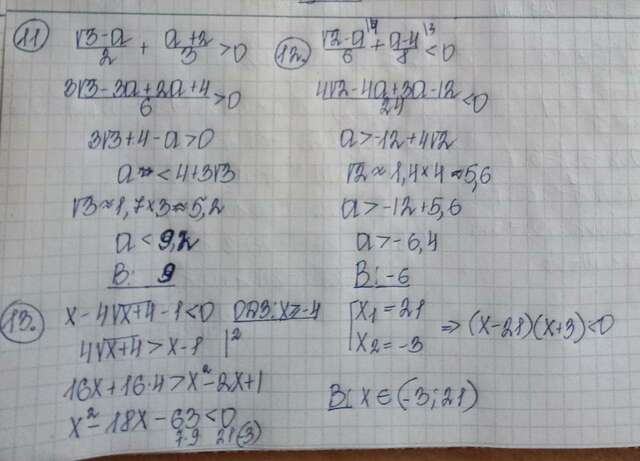 11 (√3-a)/2 + (a+2)/3 > 0
(3√3-3a+2a+4)/6 > 0
3√3+4-a>0
a < 4+3√3
√3≈1,7×3≈5,2
a < 9,2
B: 9
12. (√2-a)/6 |4 + (a-4)/8 |3 < 0
(4√2-4a+3a-12)/24 < 0
a>-12+4√2
√2≈1,4×4≈5,6
a>-12+5,6
a>-6,4
B: -6
13. x-4√x+4-1<0 ОДЗ: x≥-4
4√x+4>x-1 |²
16x+16·4>x²-2x+1
x²-18x-63<0
7·9 21(-3)
x₁=21
x₂=-3
⇒(x-21)(x+3)<0
B: x∈(-3;21)